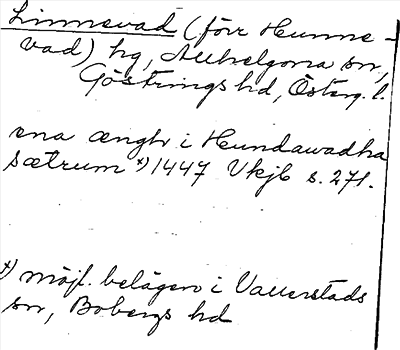 Linnevad (förr Hunne-
vad) hg, Allhelgona sn,
Göstrings hd, Österg. l.
ena ængh i Hundawadha
sætrum x) 1447 Vkjb s. 271.
x) möjl. belägen i Vallerstads
sn, Bobergs hd